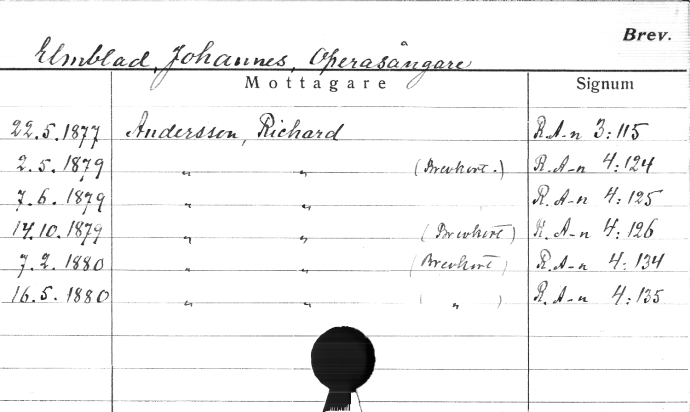 Brev.
Elmblad, Johannes, Operasångare
Mottagare Signum
22.5.1877 Andersson, Richard R.A-n 3:115
2.5.1879 „ „ (Brevkort.) R.A-n 4:124
7.6.1879 „ „ R.A-n 4:125
14.10.1879 „ „ (Brevkort) R.A-n 4:126
7.2.1880 „ „ (Brevkort) R.A-n 4:134
16.5.1880 „ „ ( „ ) R.A-n 4:135